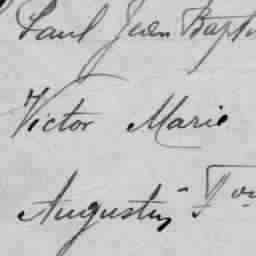 Paul Jean Bapt
Victor Marie
Augustin